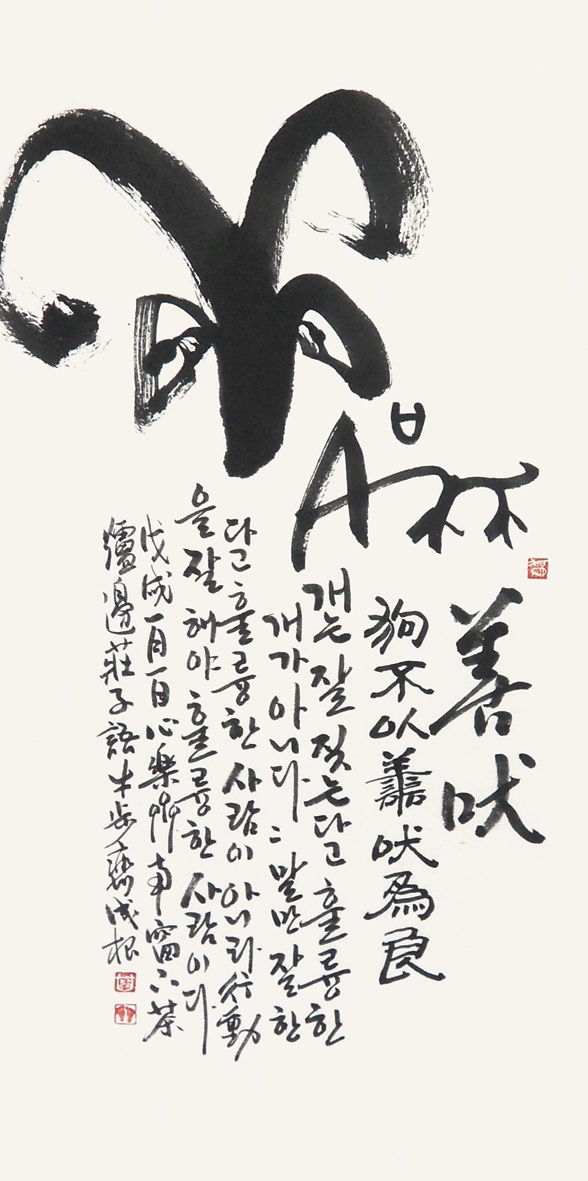 善吠
狗不以譱吠為良
개는 잘 짖는다고 훌륭한
개가 아니다 말만 잘 한
다고 훌륭한 사람이 아니라 行動
을 잘 해야 훌륭한 사람이다
戊戌一月一日心樂南窗下茶
爐邊莊子語牛步齋成根